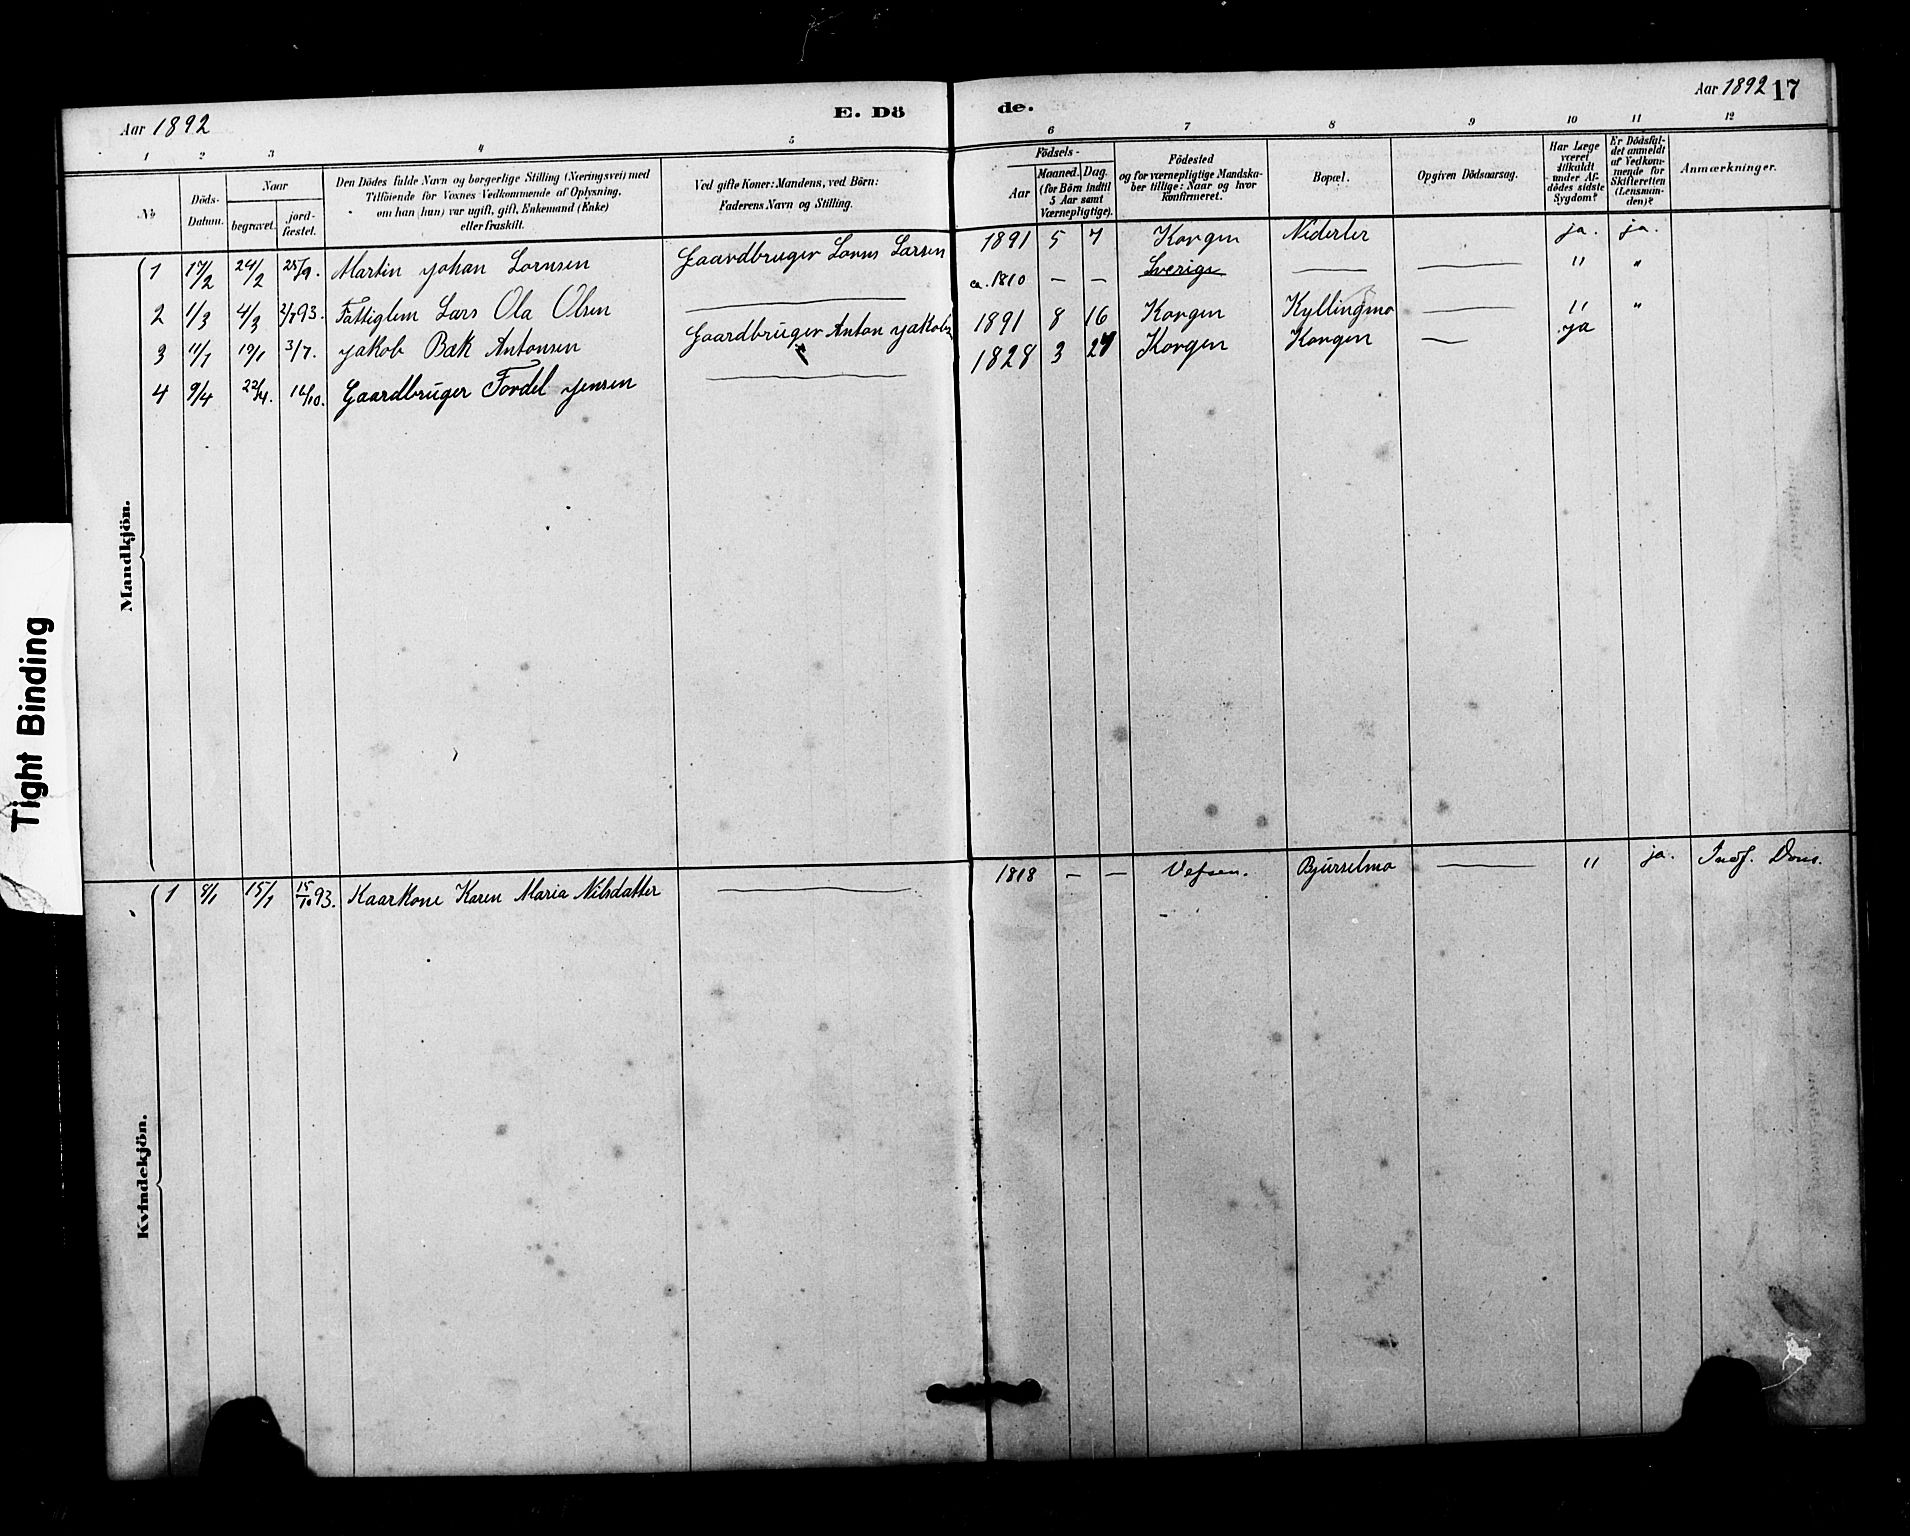 Aar 1892
E. Dö
de.
Aar 1892 17
1 2 3 4 5 6 7 8 9 10 11 12
No
Döds-
Datum.
Naar
begravet.
jord-
fæstet.
Den Dödes fulde Navn og borgerlige Stilling (Næringsvei) med
Tilföiende for Voxnes Vedkommende af Oplysning,
om han (hun) var ugift, gift, Enkemand (Enke)
eller fraskilt.
Ved gifte Koner: Mandens, ved Börn:
Faderens Navn og Stilling.
Födsels-
Aar
Maaned. Dag.
(for Börn indtil
5 Aar samt
Værnepligtige).
Födested
og for værnepligtige Mandska-
ber tillige: Naar og hvor
konfirmeret.
Bopæl.
Opgiven Dödsaarsag.
Har Læge
været
tilkaldt
under Af-
dödes sidste
Sygdom?
Er Dödsfal-
det anmeldt
af Vedkom-
mende for
Skifteretten
(Lensman-
den)?
Anmærkninger.
Mandkjön.
1 17/2 24/2 25/9. Martin Johan Lornsen Gaardbruger Lorns Larsen 1891 5 7 Korgen Nederler ja. ja.
2 1/3 4/3 2/7 93. Fattiglem Lars Ola Olsen ca. 1810 — — Sverige — — " "
3 11/1 19/1 3/7. Jakob Bæk Antonsen Gaardbruger Anton Jakobs 1891 8 16 Korgen Kyllingmo — " "
4 9/4 22/4. 16/10. Gaardbruger Fordel Jensen 1828 3 27 Korgen Korgen — ja
Kvindekjön.
1 8/1 15/1 15/10 93. Kaarkone Karen Maria Nilsdatter — 1818 — — Vefsen. Bjurselmo — " ja. Indf. Dons.
Tight Binding